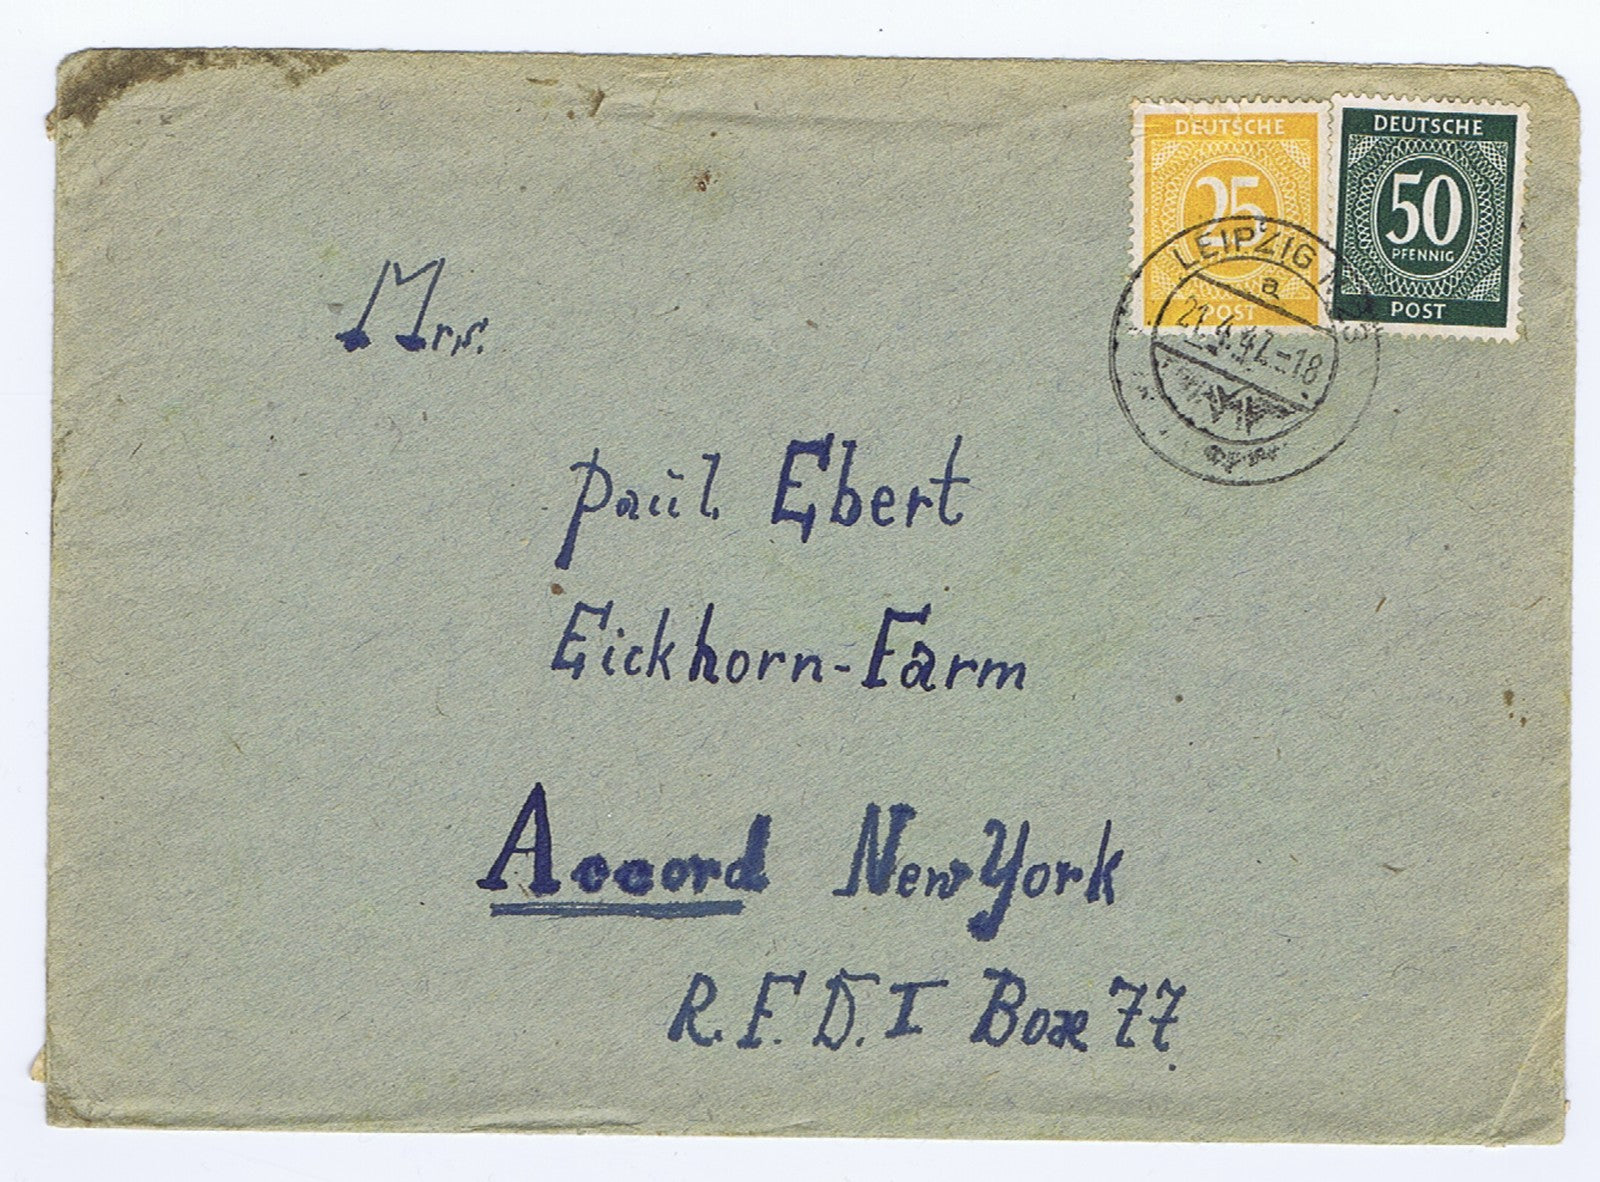 DEUTSCHE
25
POST
DEUTSCHE
50
PFENNIG
POST
LEIPZIG
a
21.4.47.-18
Mrs.
Paul Ebert
Eickhorn-Farm
Accord New York
R.F.D. I Box 77